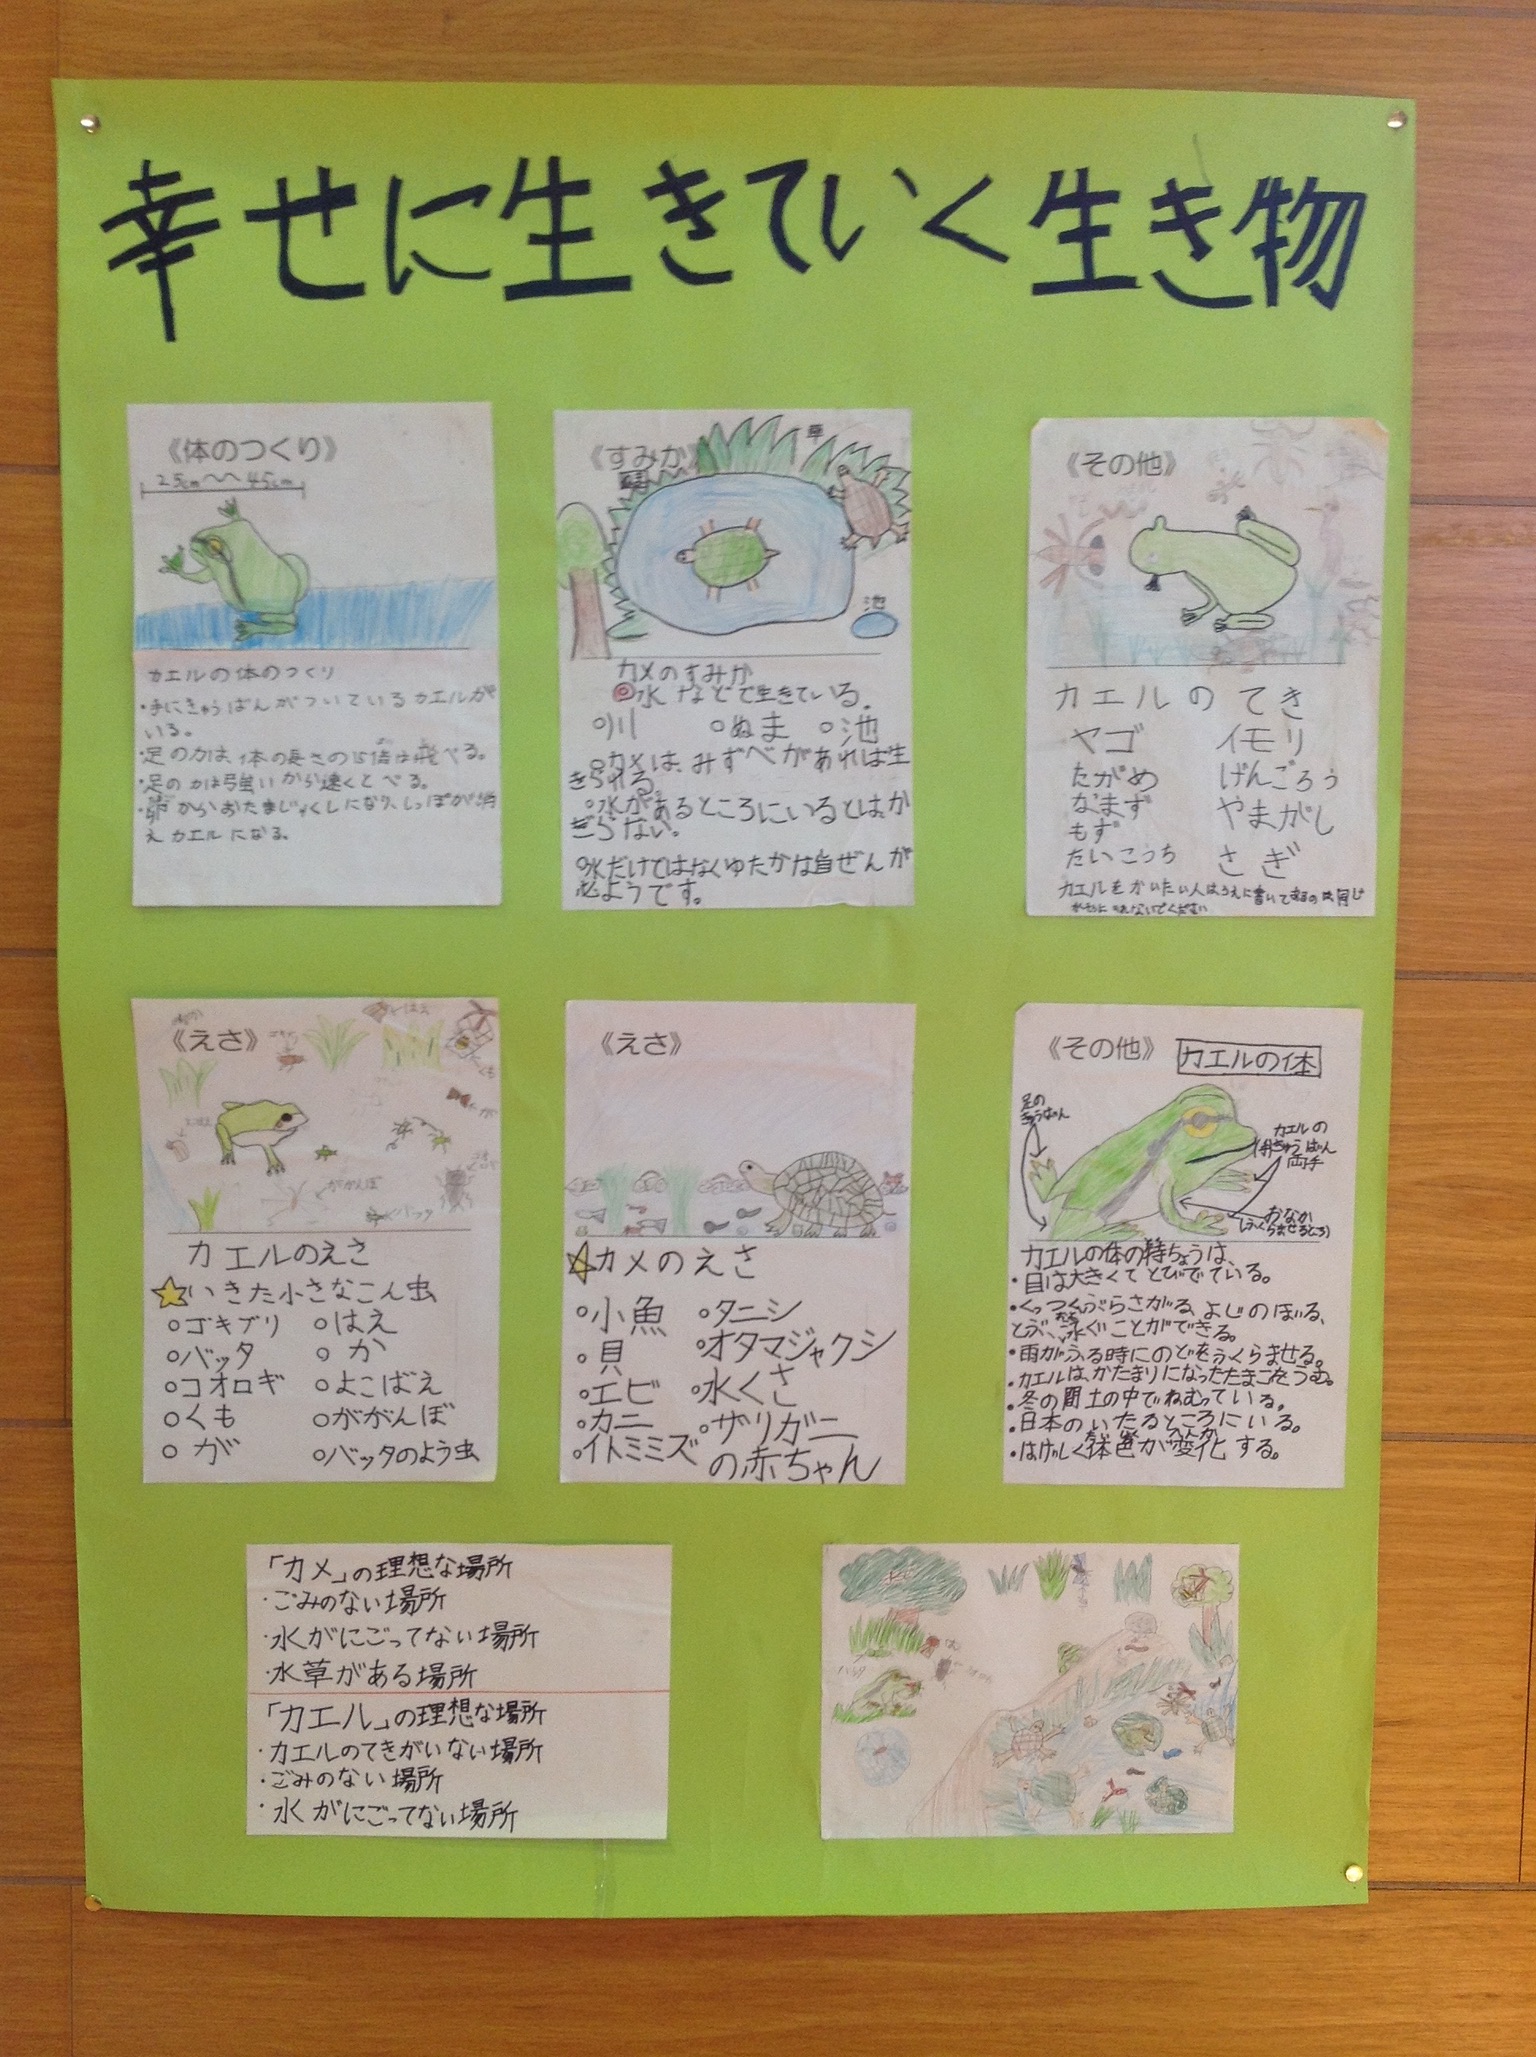 幸せに生きていく生き物
《体のつくり》
25cm〜45cm
カエルの体のつくり
・手にきゅうばんがついているカエルが
いる。
・足の力は、体の長さの15倍は飛べる。
・足の力は強いから速くとべる。
・卵からおたまじゃくしになり、しっぽが消
えカエルになる。
《すみか》
草
池
カメのすみか
◎水などで生きている。
○川 ○ぬま ○池
○カメは、みずべがあれば生
きられる
○水があるところにいるとはか
ぎらない。
○水だけではなくゆたかな自ぜんが
必ようです。
《その他》
カエルのてき
ヤゴ イモリ
たがめ げんごろう
なまず やまがし
もず
たいこうち さぎ
カエルをかいたい人はうえに書いてあるのは同じ
水そうに入れないでください
《えさ》
はえ
ががんぼ
バッタ
カエルのえさ
☆いきた小さなこん虫
○ゴキブリ ○はえ
○バッタ ○か
○コオロギ ○よこばえ
○くも ○ががんぼ
○が ○バッタのよう虫
《えさ》
☆カメのえさ
○小魚 ○タニシ
○貝 ○オタマジャクシ
○エビ ○水くさ
○カニ ○ザリガニ
○イトミミズ の赤ちゃん
《その他》 カエルの体
足の
きゅうばん
カエルの
きゅうばん
両手
おなか
(ふくらませるところ)
カエルの体の特ちょうは、
・目は大きくてとびでている。
・くっつく、ぶらさがる、よじのぼる、
とぶ、泳ぐことができる。
・雨がふる時にのどをふくらませる。
・カエルは、かたまりになったたまごをうむ。
・冬の間土の中でねむっている。
・日本のいたるところにいる。
・はげしく体色が変化する。
「カメ」の理想な場所
・ごみのない場所
・水がにごってない場所
・水草がある場所
「カエル」の理想な場所
・カエルのてきがいない場所
・ごみのない場所
・水がにごってない場所